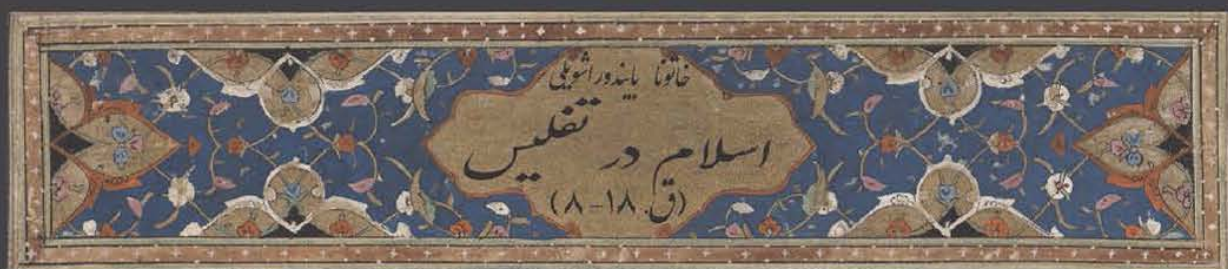 خاتونا بایندوراشویلی
اسلام در تفلیس
(ق. ۱۸-۸)